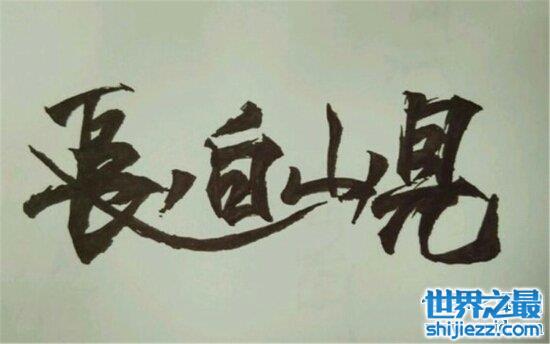 長白山見
世界之最
shijiezzi.com